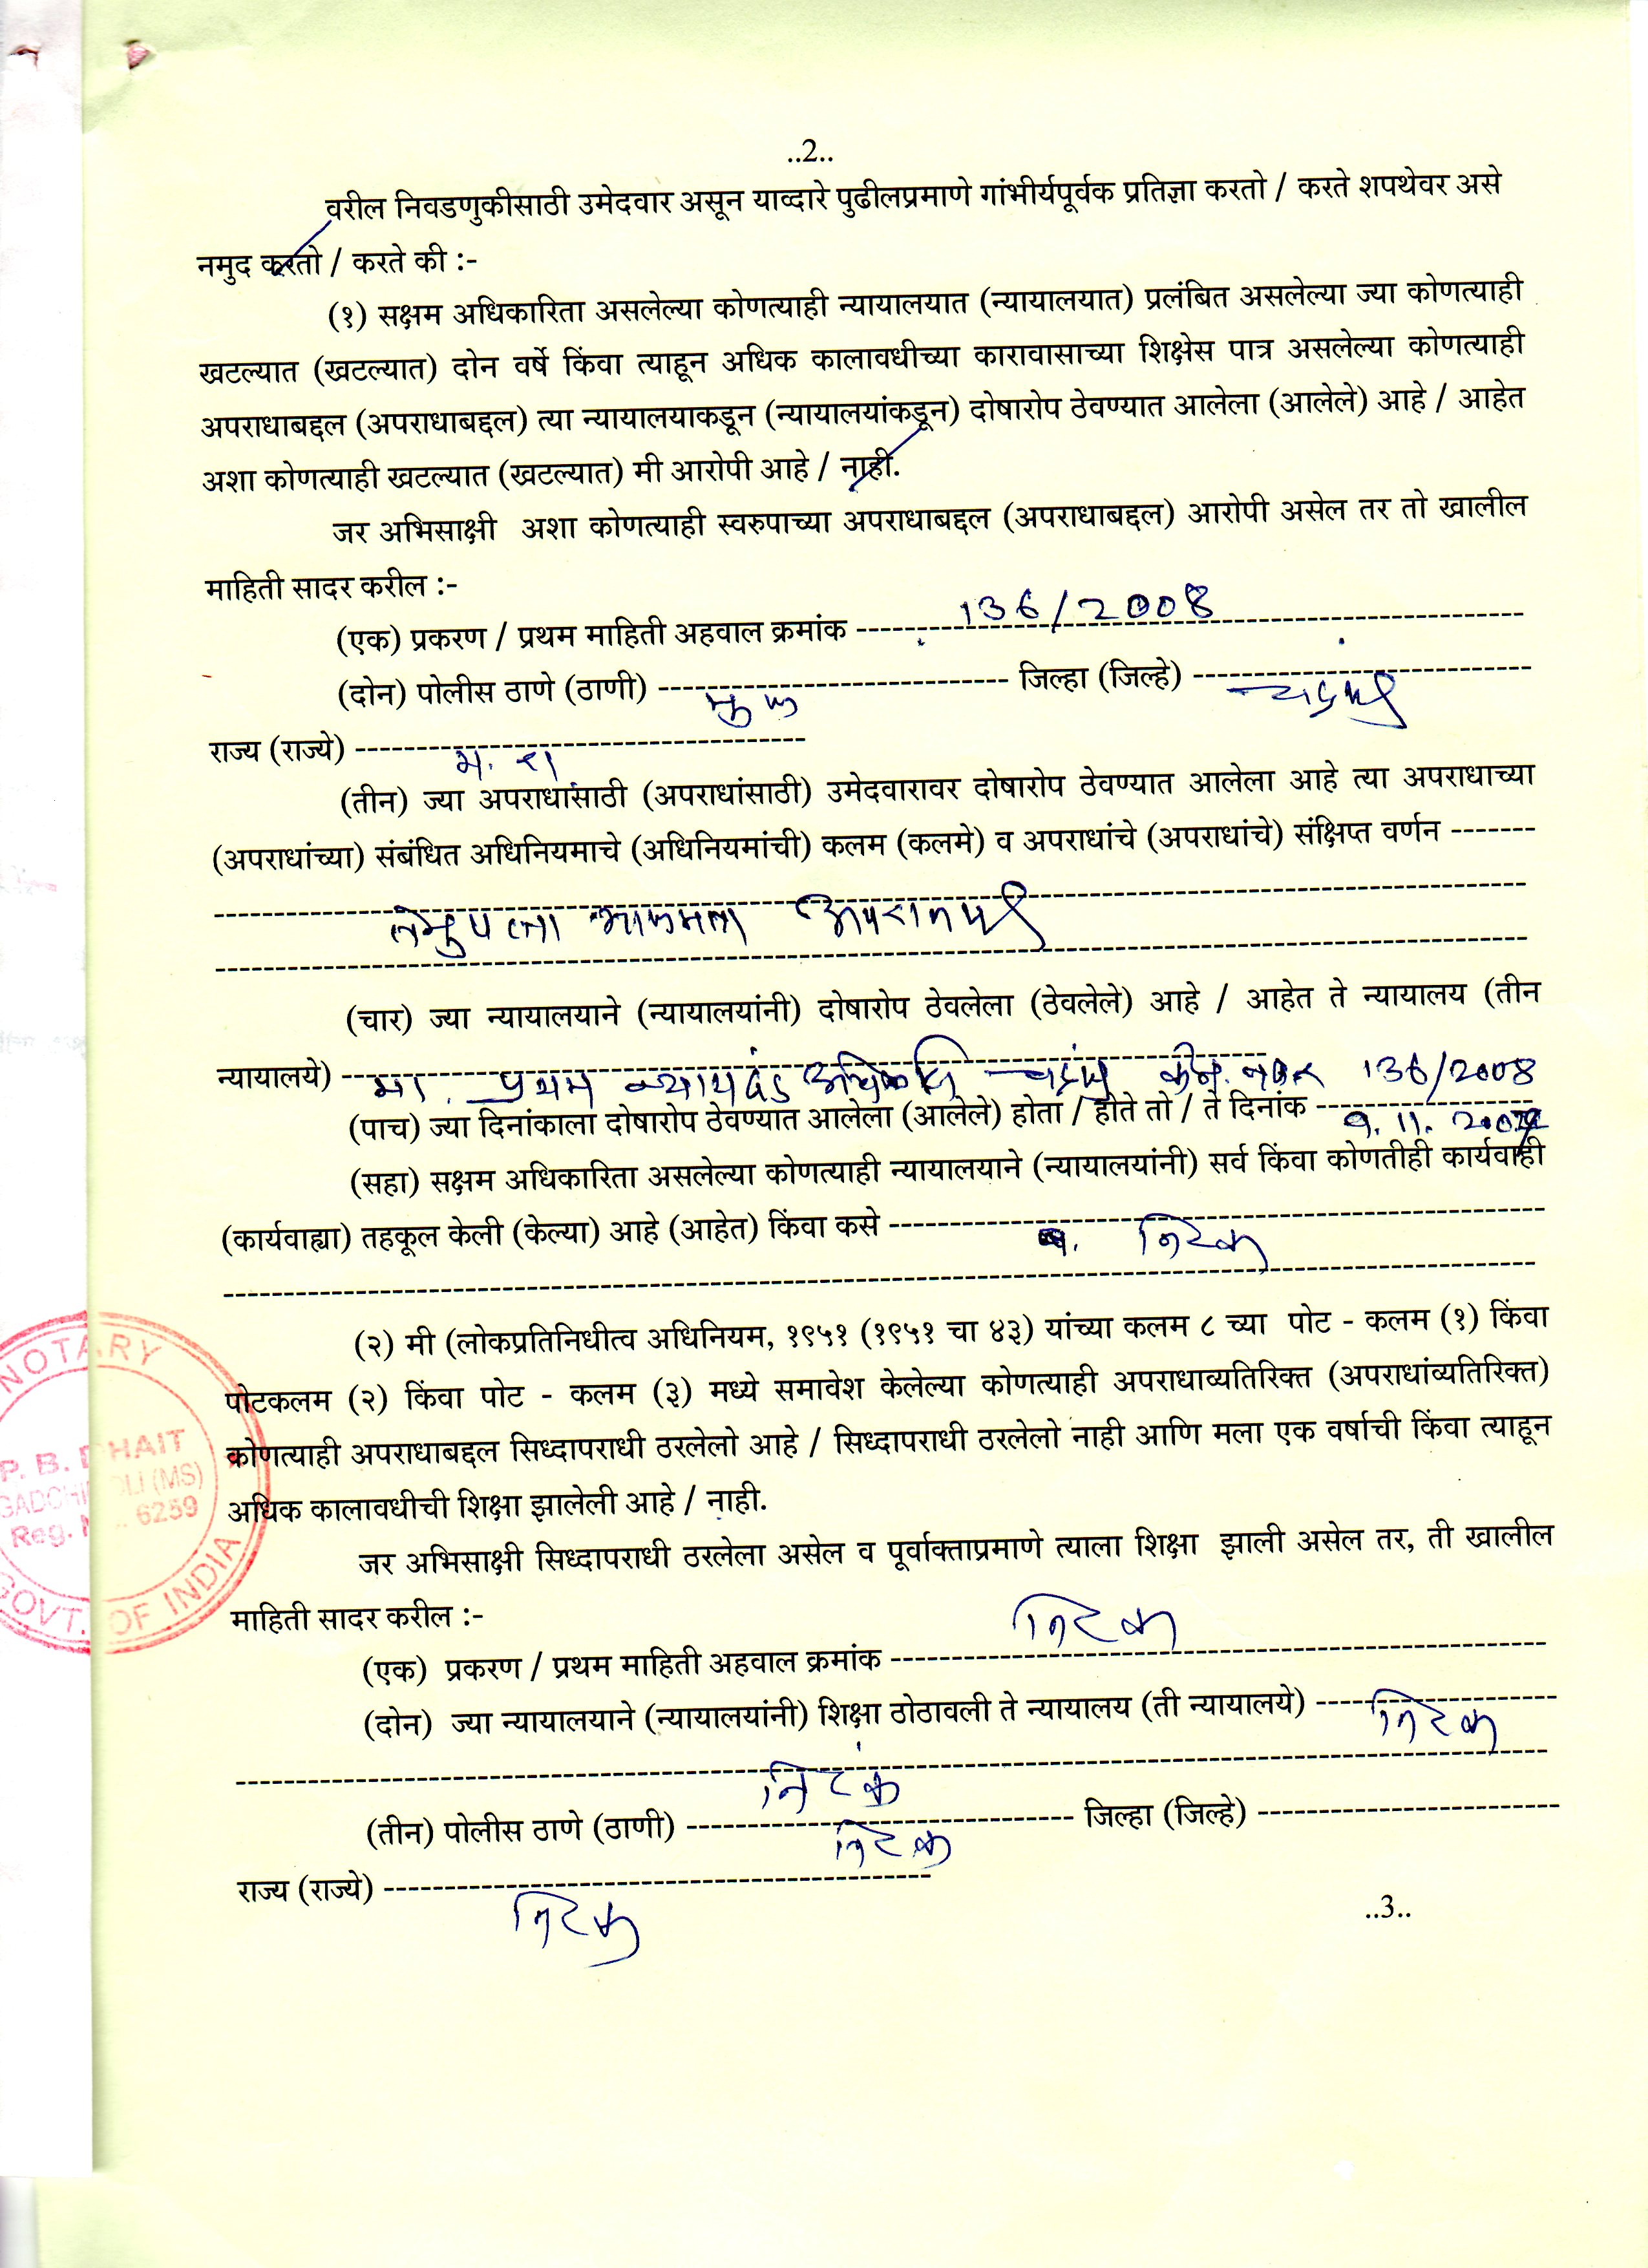 ..2..
वरील निवडणुकीसाठी उमेदवार असून याव्दारे पुढीलप्रमाणे गांभीर्यपूर्वक प्रतिज्ञा करतो / करते शपथेवर असे
नमुद करतो / करते की :-
(१) सक्षम अधिकारिता असलेल्या कोणत्याही न्यायालयात (न्यायालयात) प्रलंबित असलेल्या ज्या कोणत्याही
खटल्यात (खटल्यात) दोन वर्षे किंवा त्याहून अधिक कालावधीच्या कारावासाच्या शिक्षेस पात्र असलेल्या कोणत्याही
अपराधाबद्दल (अपराधाबद्दल) त्या न्यायालयाकडून (न्यायालयांकडून) दोषारोप ठेवण्यात आलेला (आलेले) आहे / आहेत
अशा कोणत्याही खटल्यात (खटल्यात) मी आरोपी आहे / नाही.
जर अभिसाक्षी अशा कोणत्याही स्वरुपाच्या अपराधाबद्दल (अपराधाबद्दल) आरोपी असेल तर तो खालील
माहिती सादर करील :-
(एक) प्रकरण / प्रथम माहिती अहवाल क्रमांक 136/2008
(दोन) पोलीस ठाणे (ठाणी) मुल जिल्हा (जिल्हे) चंद्रपुर
राज्य (राज्ये) म. रा
(तीन) ज्या अपराधांसाठी (अपराधांसाठी) उमेदवारावर दोषारोप ठेवण्यात आलेला आहे त्या अपराधाच्या
(अपराधांच्या) संबंधित अधिनियमाचे (अधिनियमांची) कलम (कलमे) व अपराधांचे (अपराधांचे) संक्षिप्त वर्णन
(चार) ज्या न्यायालयाने (न्यायालयांनी) दोषारोप ठेवलेला (ठेवलेले) आहे / आहेत ते न्यायालय (तीन
न्यायालये) मा. प्रथम न्यायदंडअधिकारी चंद्रपुर 136/2008
(पाच) ज्या दिनांकाला दोषारोप ठेवण्यात आलेला (आलेले) होता / होते तो / ते दिनांक
(सहा) सक्षम अधिकारिता असलेल्या कोणत्याही न्यायालयाने (न्यायालयांनी) सर्व किंवा कोणतीही कार्यवाही
(कार्यवाह्या) तहकूल केली (केल्या) आहे (आहेत) किंवा कसे निरंक
(२) मी (लोकप्रतिनिधीत्व अधिनियम, १९५१ (१९५१ चा ४३) यांच्या कलम ८ च्या पोट - कलम (१) किंवा
पोटकलम (२) किंवा पोट - कलम (३) मध्ये समावेश केलेल्या कोणत्याही अपराधाव्यतिरिक्त (अपराधांव्यतिरिक्त)
कोणत्याही अपराधाबद्दल सिध्दापराधी ठरलेलो आहे / सिध्दापराधी ठरलेलो नाही आणि मला एक वर्षाची किंवा त्याहून
अधिक कालावधीची शिक्षा झालेली आहे / नाही.
जर अभिसाक्षी सिध्दापराधी ठरलेला असेल व पूर्वाक्ताप्रमाणे त्याला शिक्षा झाली असेल तर, ती खालील
माहिती सादर करील :-
(एक) प्रकरण / प्रथम माहिती अहवाल क्रमांक निरंक
(दोन) ज्या न्यायालयाने (न्यायालयांनी) शिक्षा ठोठावली ते न्यायालय (ती न्यायालये) निरंक
निरंक
(तीन) पोलीस ठाणे (ठाणी) निरंक जिल्हा (जिल्हे)
राज्य (राज्ये) निरंक
..3..
NOTARY
P. B. DHAIT
GADCHIROLI (MS)
Reg. No. 6259
GOVT. OF INDIA